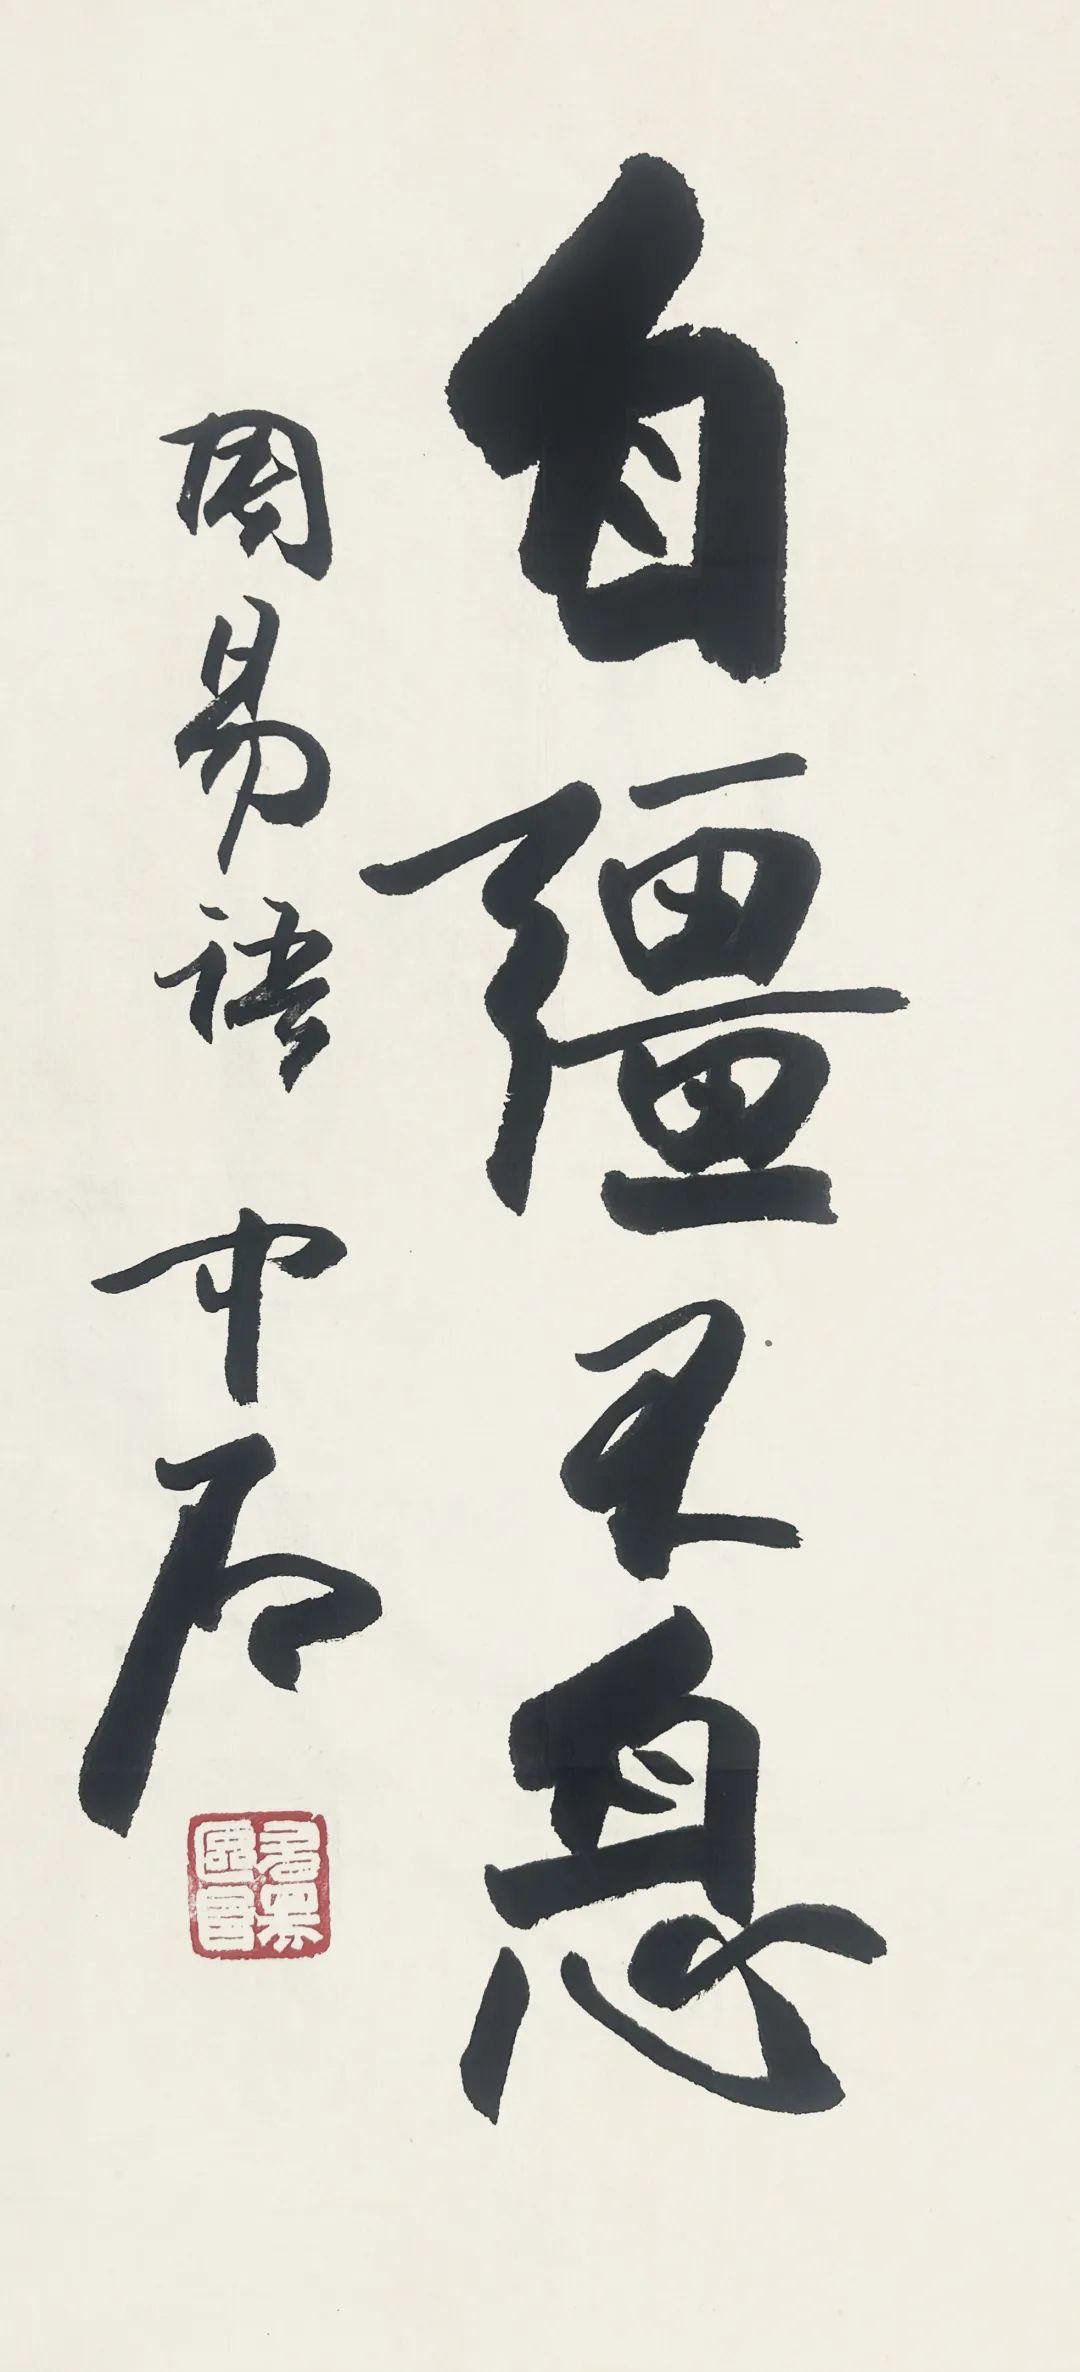 自彊不息
周易语 中石